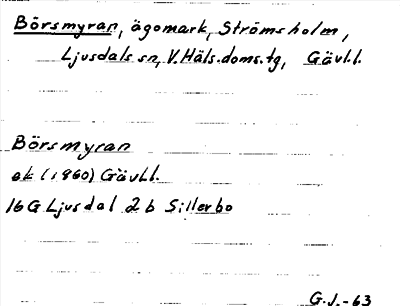 Börsmyran, ägomark, Strömsholm,
Ljusdals sn, V. Häls. doms. tg, Gävl.l.
Börsmyran
ek (1960) Gävl.l.
16 G Ljusdal 2b Sillerbo
G.J.-63